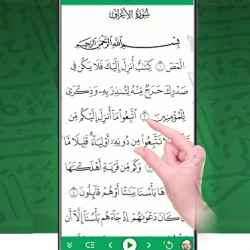 سُورَةُ الأَعْرَافِ
بِسْمِ اللَّهِ الرَّحْمَٰنِ الرَّحِيمِ
الٓمٓصٓ ۝١ كِتَابٌ أُنزِلَ إِلَيْكَ فَلَا يَكُن فِى
صَدْرِكَ حَرَجٌ مِّنْهُ لِتُنذِرَ بِهِۦ وَذِكْرَىٰ
لِلْمُؤْمِنِينَ ۝٢ ٱتَّبِعُوا۟ مَآ أُنزِلَ إِلَيْكُم مِّن
تَتَّبِعُوا۟ مِن دُونِهِۦٓ أَوْلِيَآءَ ۗ قَلِيلًا مَّا
وَكَم مِّن قَرْيَةٍ أَهْلَكْنَـٰهَا
بَأْسُنَا بَيَـٰتًا أَوْ هُمْ قَآئِلُونَ ۝٤
كَانَ دَعْوَىٰهُمْ إِذْ جَآءَهُم بَأْسُنَآ إِلَّآ أَن